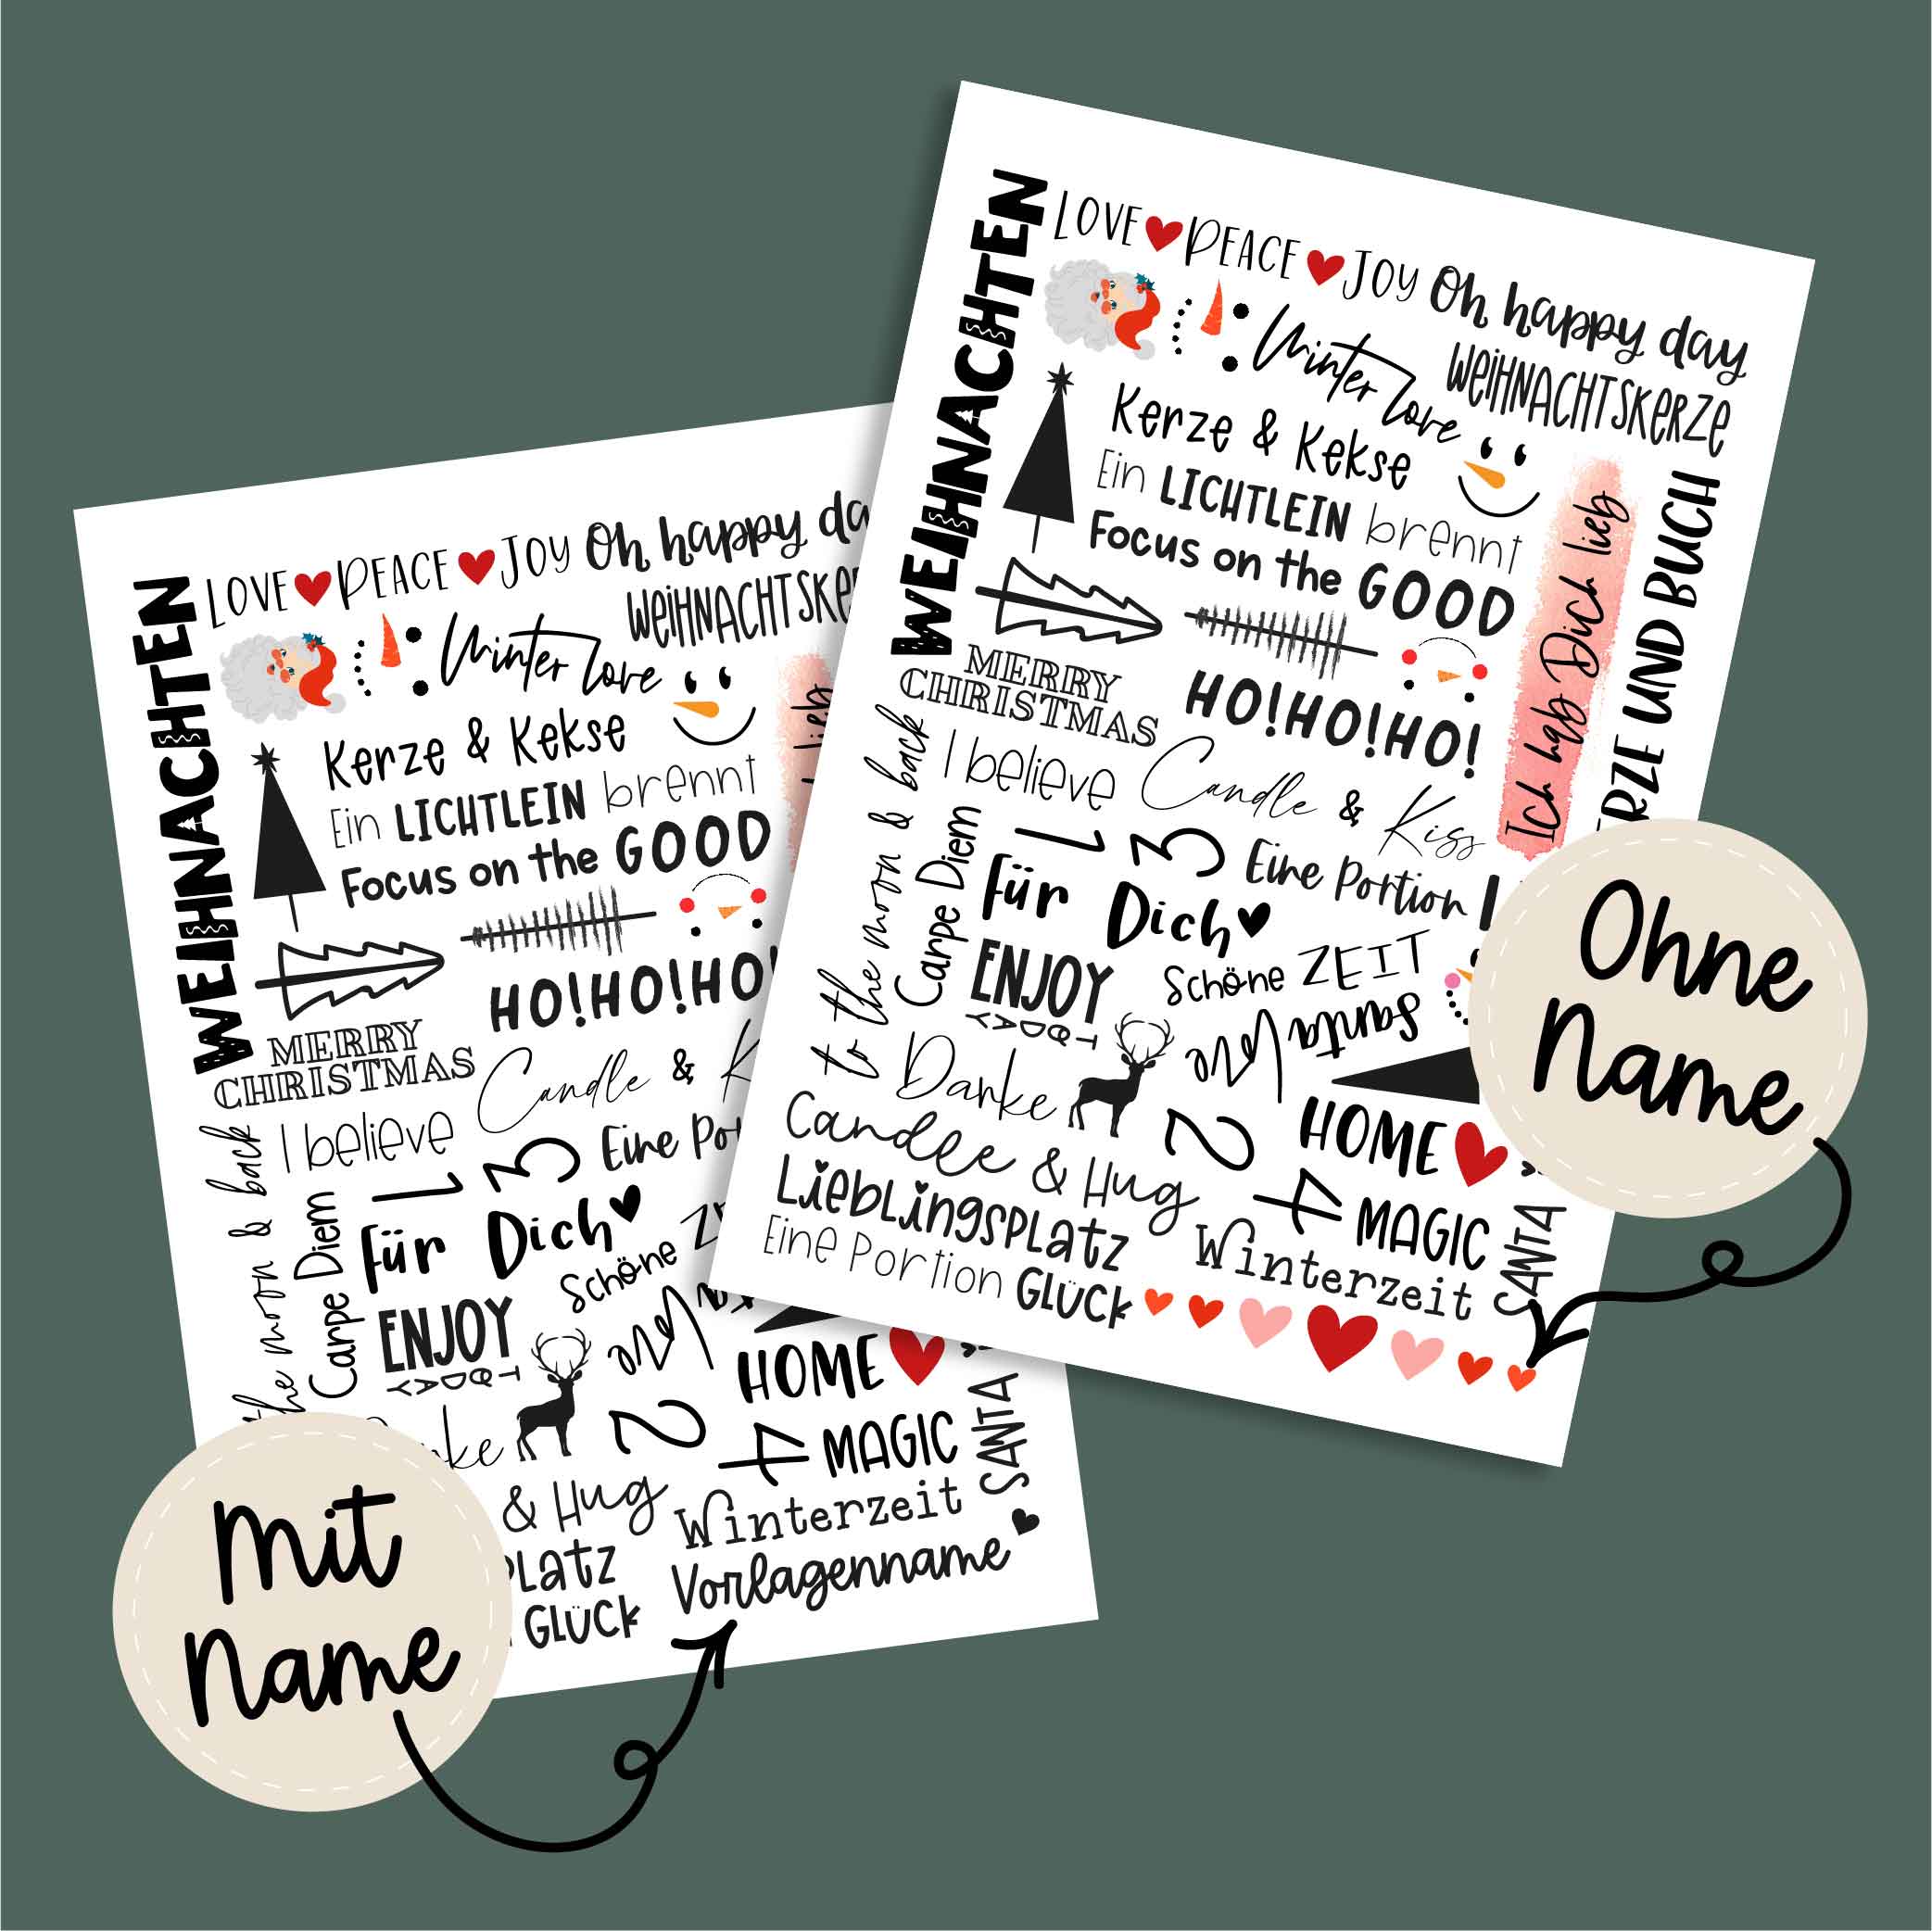 WEIHNACHTEN
LOVE ❤ PEACE ❤ JOY Oh happy day
WEIHNACHTSKERZE
Winter Love
Kerze & Kekse
Ein LICHTLEIN brennt
Focus on the GOOD
Ich hab Dich lieb
RZE UND BUCH
MERRY
CHRISTMAS
HO!HO!HO!
to the moon & back
I believe
Candle & Kiss
Carpe Diem
1 3
Eine Portion
Für Dich
ENJOY
TODAY
Schöne ZEIT
Santa
Love
Danke
2
HOME
Candle & Hug
4
MAGIC
Lieblingsplatz
Winterzeit
SANTA
Eine Portion GLÜCK
Ohne
Name
WEIHNACHTEN
LOVE ❤ PEACE ❤ JOY Oh happy da
WEIHNACHTSKE
Winter Love
Kerze & Kekse
Ein LICHTLEIN brennt
Focus on the GOOD
lieb
HO!HO!HO!
MERRY
CHRISTMAS
the moon & back
I believe
Candle & K
Carpe Diem
1 3
Eine Po
Für Dich
ENJOY
TODAY
Schöne ZE
HOME
2
4
MAGIC
SANTA
& Hug
Winterzeit
platz
Vorlagenname
GLÜCK
Mit
Name